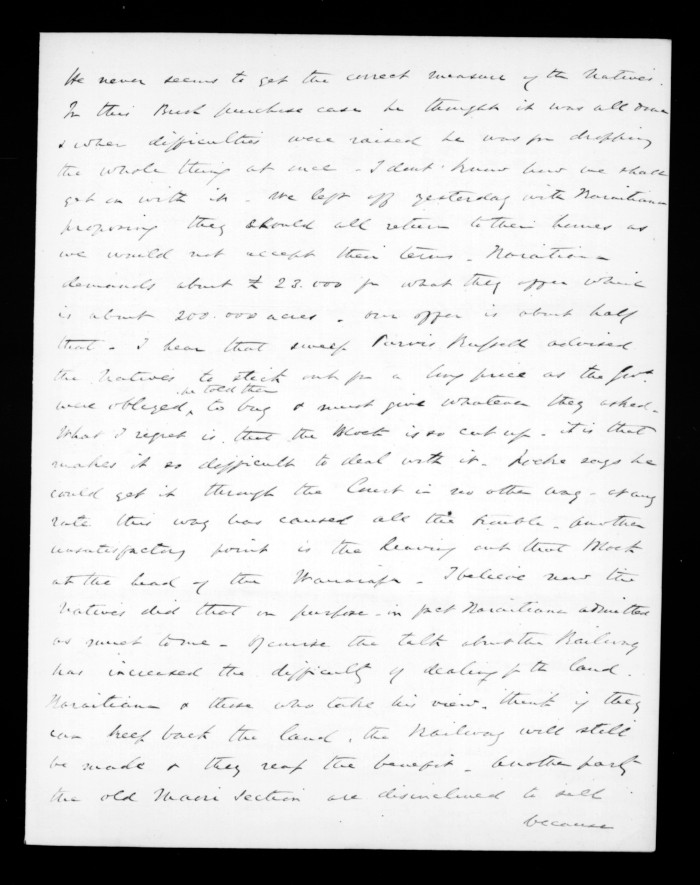 He never seems to get the correct measure of the Natives.
In this Bush purchase case he thought it was all done
& when difficulties were raised he was for dropping
the whole thing at once - I dont know how we shall
get on with it - We left off yesterday with Karaitiana
proposing they should all return to their homes as
we would not accept their terms - Karaitiana
demands about £23.000 for what they offer which
is about 200.000 acres - our offer is about half
that - I hear that sweep Purvis Russell advised
the Natives to stick out for a long price as the Govt
he told them
were obliged, to buy & must give whatever they asked -
What I regret is that the Block is so cut up - it is that
makes it so difficult to deal with it - Locke says he
could get it through the Court in no other way - at any
rate this way has caused all the trouble - another
unsatisfactory point is the leaving out that Block
at the head of the - I believe now the
Natives did that on purpose - in fact Karaitiana admitted
as much to me - Of course the talk about the Railway
has increased the difficulty of dealing for the land.
Karaitiana & those who take his view, think if they
can keep back the land, the Railway will still
be made & they reap the benefit - Another party
the old Maori section are disinclined to sell
because